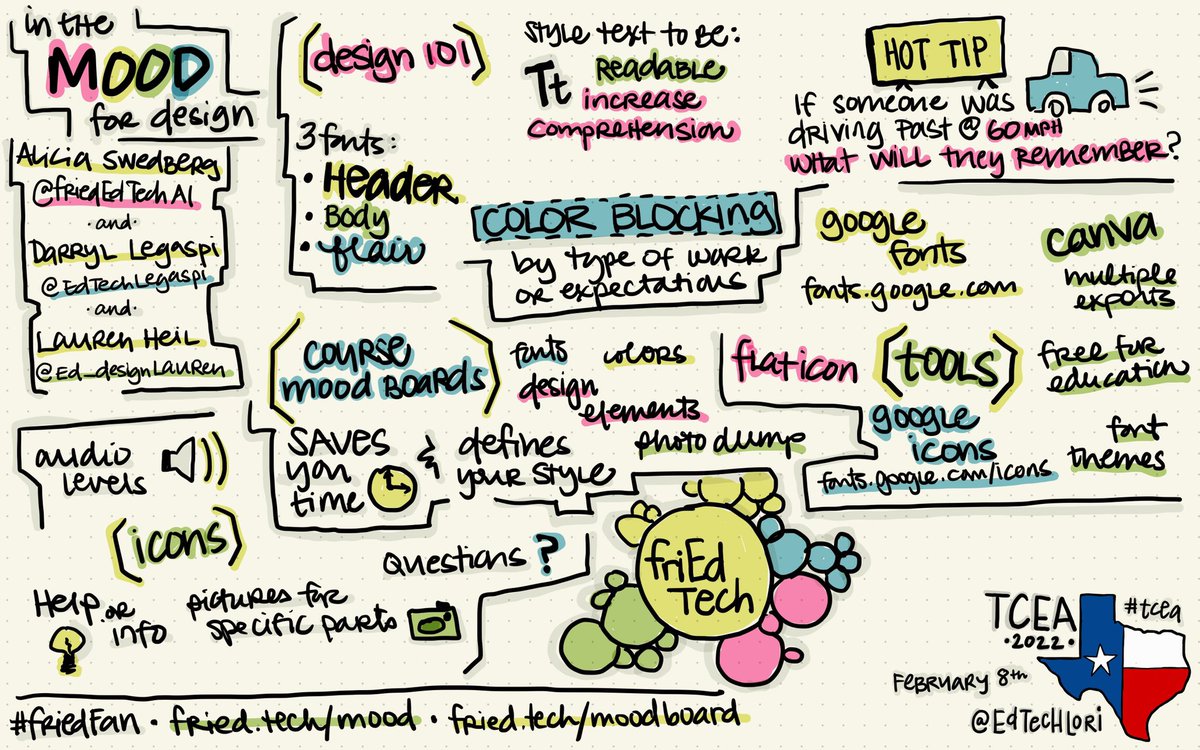 in the
MOOD
for design
Alicia Swedberg
@friedEdTechAl
·and·
Darryl Legaspi
@EdTechLegaspi
·and·
Lauren Heil
@Ed_designLauren
(design 101)
3 fonts:
• Header
• Body
• flair
Style text to be:
Tt Readable
increase
comprehension
HOT TIP
If someone was
driving past @ 60MPH
what will they remember?
COLOR BLOCKING
by type of work
or expectations
google
fonts
fonts.google.com
canva
multiple
exports
free for
education
font
themes
flaticon
(TOOLS)
google
icons
fonts.google.com/icons
(course
mood boards)
fonts colors
design
elements
photo dump
SAVES
you
time
& defines
your style
audio
levels
(icons)
Help or
info
pictures for
specific parts
Questions ?
friEd
Tech
TCEA
·2022·
#tcea
February 8th
@EdTechLori
#friedFan · fried.tech/mood · fried.tech/moodboard